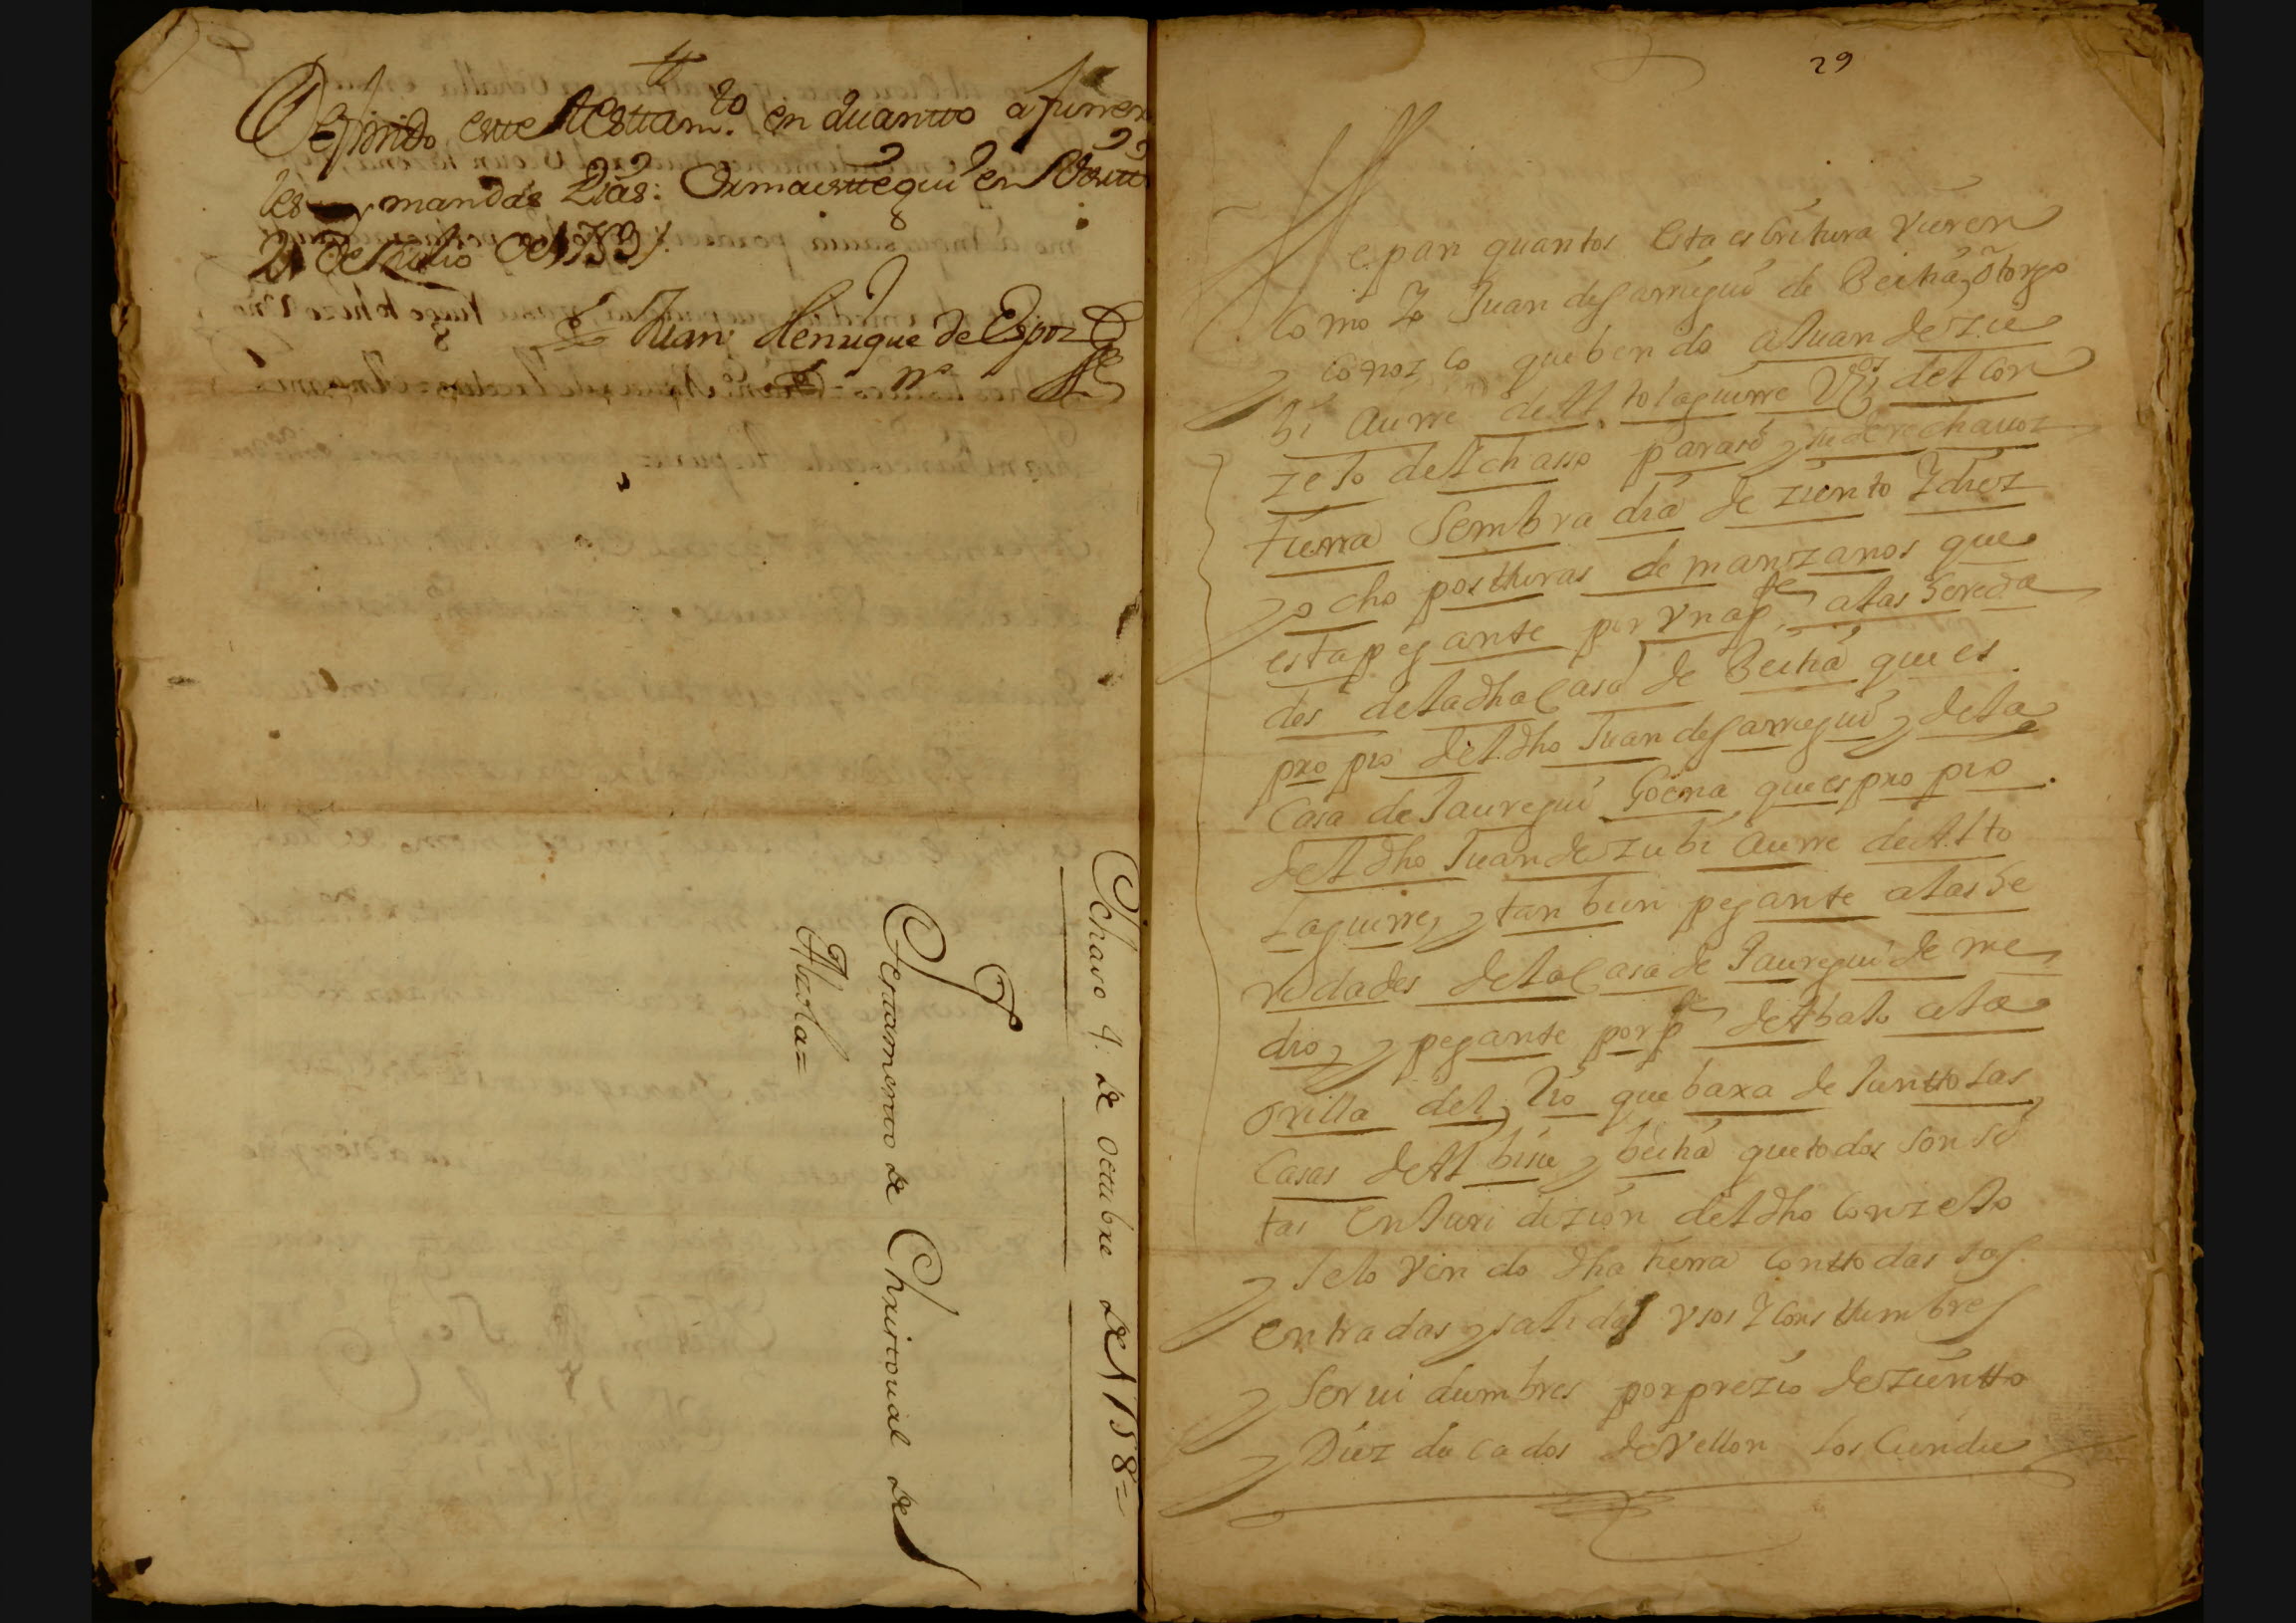 este testam.to en quantto a funera
les y mandas pias: Ormaiztegui en Visitta
21 de Julio de 1759
Juan Henrique de Espoz
Ichaso 4: de octubre de 1758=
Testamento de Christoual de
Aleola=
29
Sepan quantos esta escritura vieren
como Yo Juan de Sarregui de Beitia, otorgo
y conozco que bendo a Juan de Zu
bi Aurre de Altolaguirre Vº del con
zejo del ichasso para si y su derecha uoz
tierra sembradia de ziento y diez
y ocho postturas de manzanos que
esta pegante por vna p.te a las hereda
des de la dha Casa de Beitia que es
propio del dho Juan de Sarregui y de la
Casa de Jauregui Goena que es propio
del dho Juan de Zubi Aurre de Alto
laguirre y tan bien pegante a las he
redades de la Casa de Jauregui de me
dio y pegante por p.te del bajo a la
orilla del rio que baxa de Juntto las
Casas de Albisu y beitia que todos son si
tas en Juridizion del dho Conzejo
y se lo vendo dha tierra con ttodas sas
entradas y salidas vsos y consttumbres
y seruidumbres por prezio de zientto
y Diez ducados de Vellon los